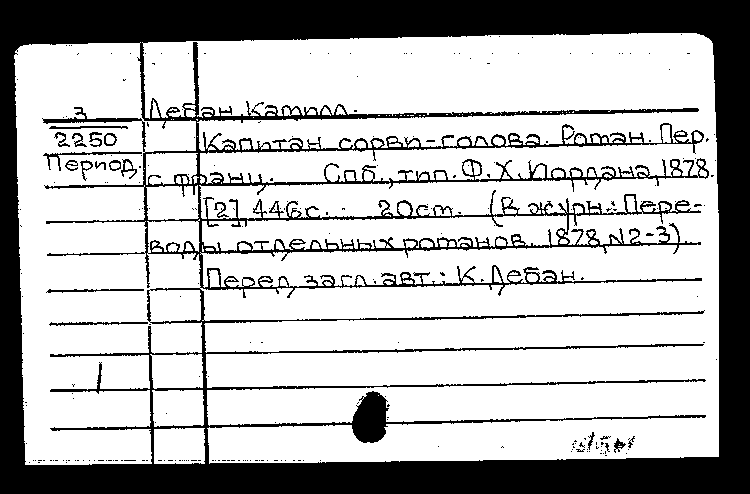 3 Дебан, Камилл.
2250 Капитан сорви-голова. Роман. Пер.
Период. с франц. Спб., тип. Ф. Х. Иордана, 1878.
[2], 446 с. 20 cm. (В журн.: Пере-
воды отдельных романов. 1878, N2-3).
Перед загл. авт.: К. Дебан.
1